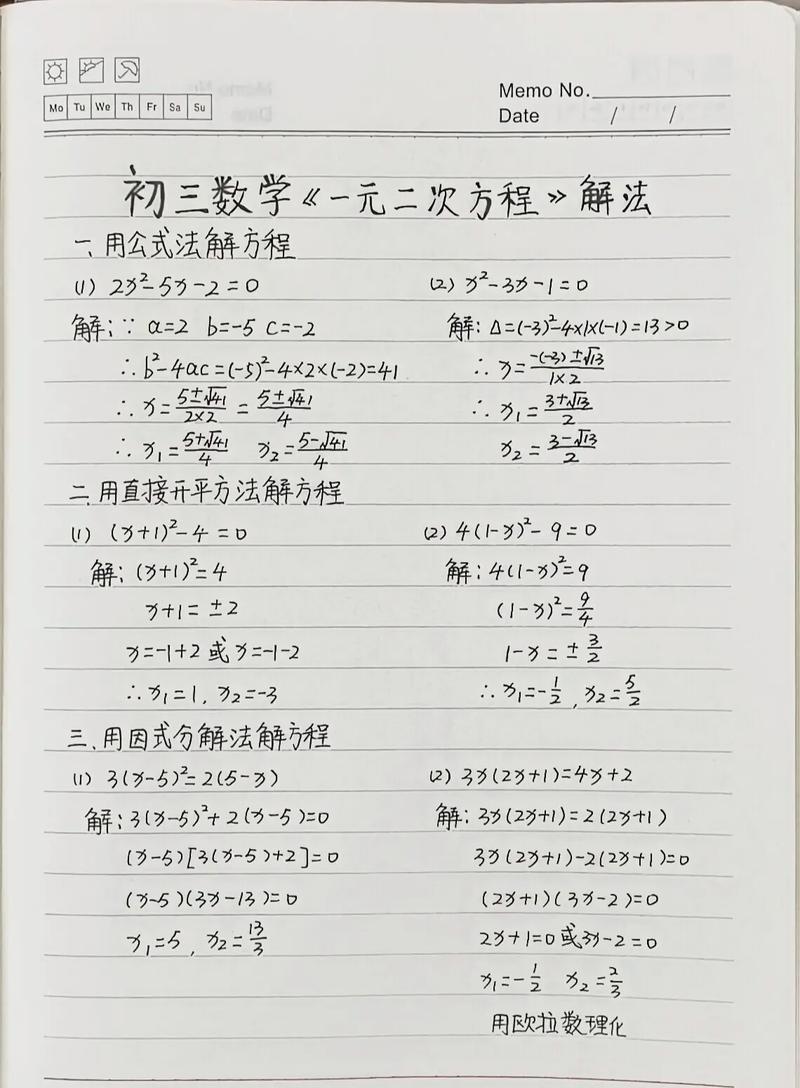 Memo No.
Mo Tu We Th Fr Sa Su
Date / /
初三数学《一元二次方程》解法
一、用公式法解方程
(1) 2x²-5x-2=0
解:∵ a=2 b=-5 c=-2
∴b²-4ac=(-5)²-4×2×(-2)=41
∴ x=\frac{5±√41}{2×2}=\frac{5±√41}{4}
∴ x₁=\frac{5+√41}{4} x₂=\frac{5-√41}{4}
(2) x²-3x-1=0
解:Δ=(-3)²-4×1×(-1)=13>0
∴ x=\frac{-(-3)±√13}{1×2}
∴ x₁=\frac{3+√13}{2}
x₂=\frac{3-√13}{2}
二、用直接开平方法解方程
(1) (x+1)²-4=0
解:(x+1)²=4
x+1=±2
x=-1+2或x=-1-2
∴x₁=1, x₂=-3
(2) 4(1-x)²-9=0
解:4(1-x)²=9
(1-x)²=\frac{9}{4}
1-x=±\frac{3}{2}
∴x₁=-\frac{1}{2}, x₂=\frac{5}{2}
三、用因式分解法解方程
(1) 3(x-5)²=2(5-x)
解:3(x-5)²+2(x-5)=0
(x-5)[3(x-5)+2]=0
(x-5)(3x-13)=0
x₁=5, x₂=\frac{13}{3}
(2) 3x(2x+1)=4x+2
解:3x(2x+1)=2(2x+1)
3x(2x+1)-2(2x+1)=0
(2x+1)(3x-2)=0
2x+1=0或3x-2=0
x₁=-\frac{1}{2} x₂=\frac{2}{3}
用欧拉数理化